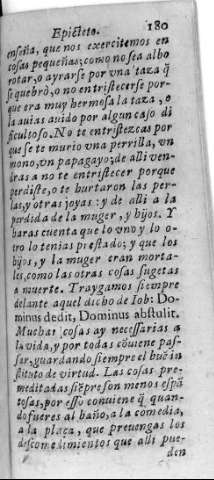 Epicteto. 180
enseña, que nos exercitemos en
cosas pequeñas; como no sea albo
rotar, o ayrarse por vna taza q̃
se quebrò, o no entristecerse por-
que era muy hermosa la taza, o
la auias auido por algun caso di
ficultoso. No te entristezcas por
que se te murio vna perrilla, vn
mono, vn papagayo; de alli ven-
dras a no te entristecer porque
perdiste, o te hurtaron las per-
las, y otras joyas: y de alli a la
perdida de la muger, y hijos. Y
haras cuenta que lo vno y lo o-
tro lo tenias prestado; y que los
hijos, y la muger eran morta-
les, como las otras cosas sugetas
a muerte. Traygamos siempre
delante aquel dicho de Iob: Do-
minus dedit, Dominus abstulit.
Muchas cosas ay necessarias a
la vida, y por todas cõuiene pas-
sar, guardando siempre el buẽ in
stituto de virtud. Las cosas pre-
meditadas siẽpre son menos espã
tosas, por esso conuiene q̃ quan-
do fueres al baño, a la comedia,
a la plaça, que preuengas los
descomedimientos que alli pue-
den